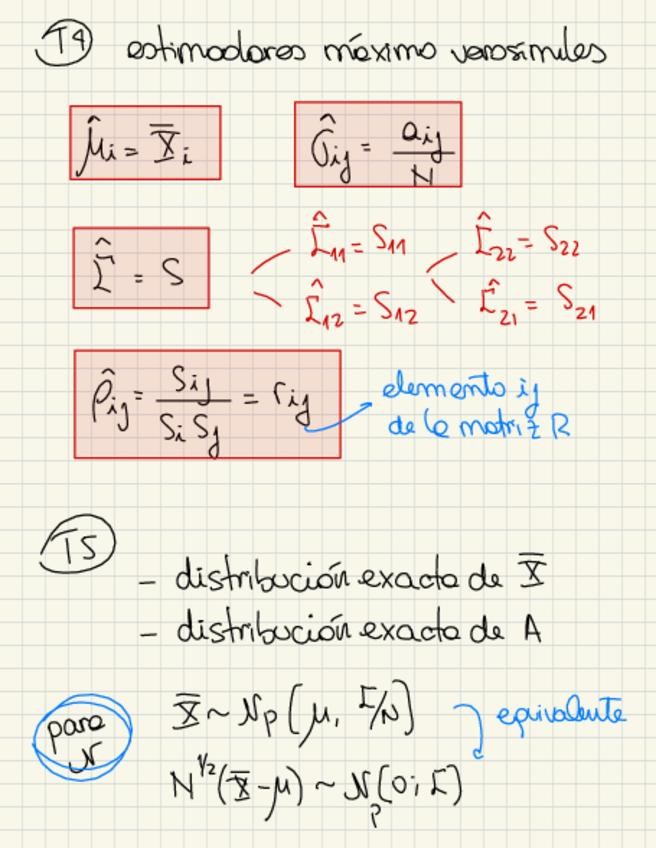 T4 estimadores máximo verosímiles
μ̂i = X̄i
σ̂ij = aij/N
Σ̂ = S
Σ̂11 = S11
Σ̂12 = S12
Σ̂22 = S22
Σ̂21 = S21
ρ̂ij = Sij/(Si Sj) = rij
elemento ij
de la matriz R
T5
- distribución exacta de X̄
- distribución exacta de A
para N
X̄ ~ Np(μ, Σ/N)
equivalente
N^1/2(X̄-μ) ~ Np(0; Σ)